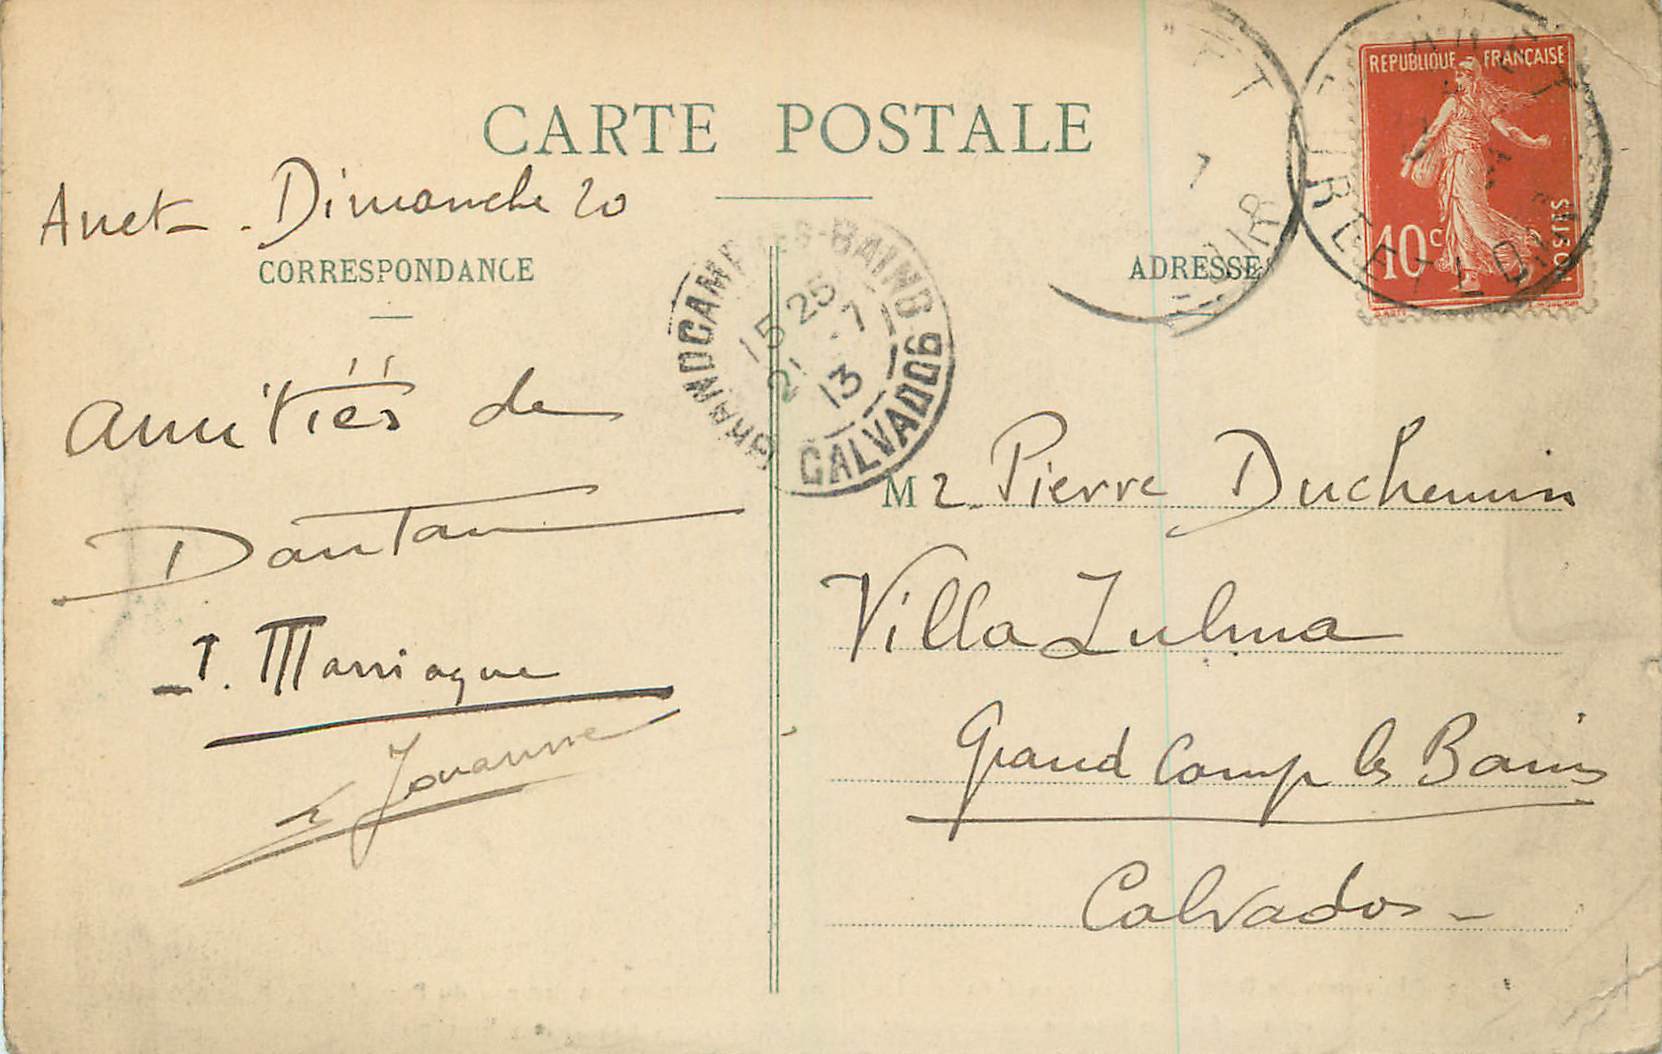 CARTE POSTALE
Anet - Dimanche 20
CORRESPONDANCE
amitiés de
Dantan
J. Marriague
Jouanne
GRANDCAMP-LES-BAINS
15 25
21 -7
13
CALVADOS
ADRESSE
REPUBLIQUE FRANÇAISE
10c
EURE ET LOIR
M r. Pierre Duchemin
Villa Zulma
Grand Camp les Bains
Calvados -